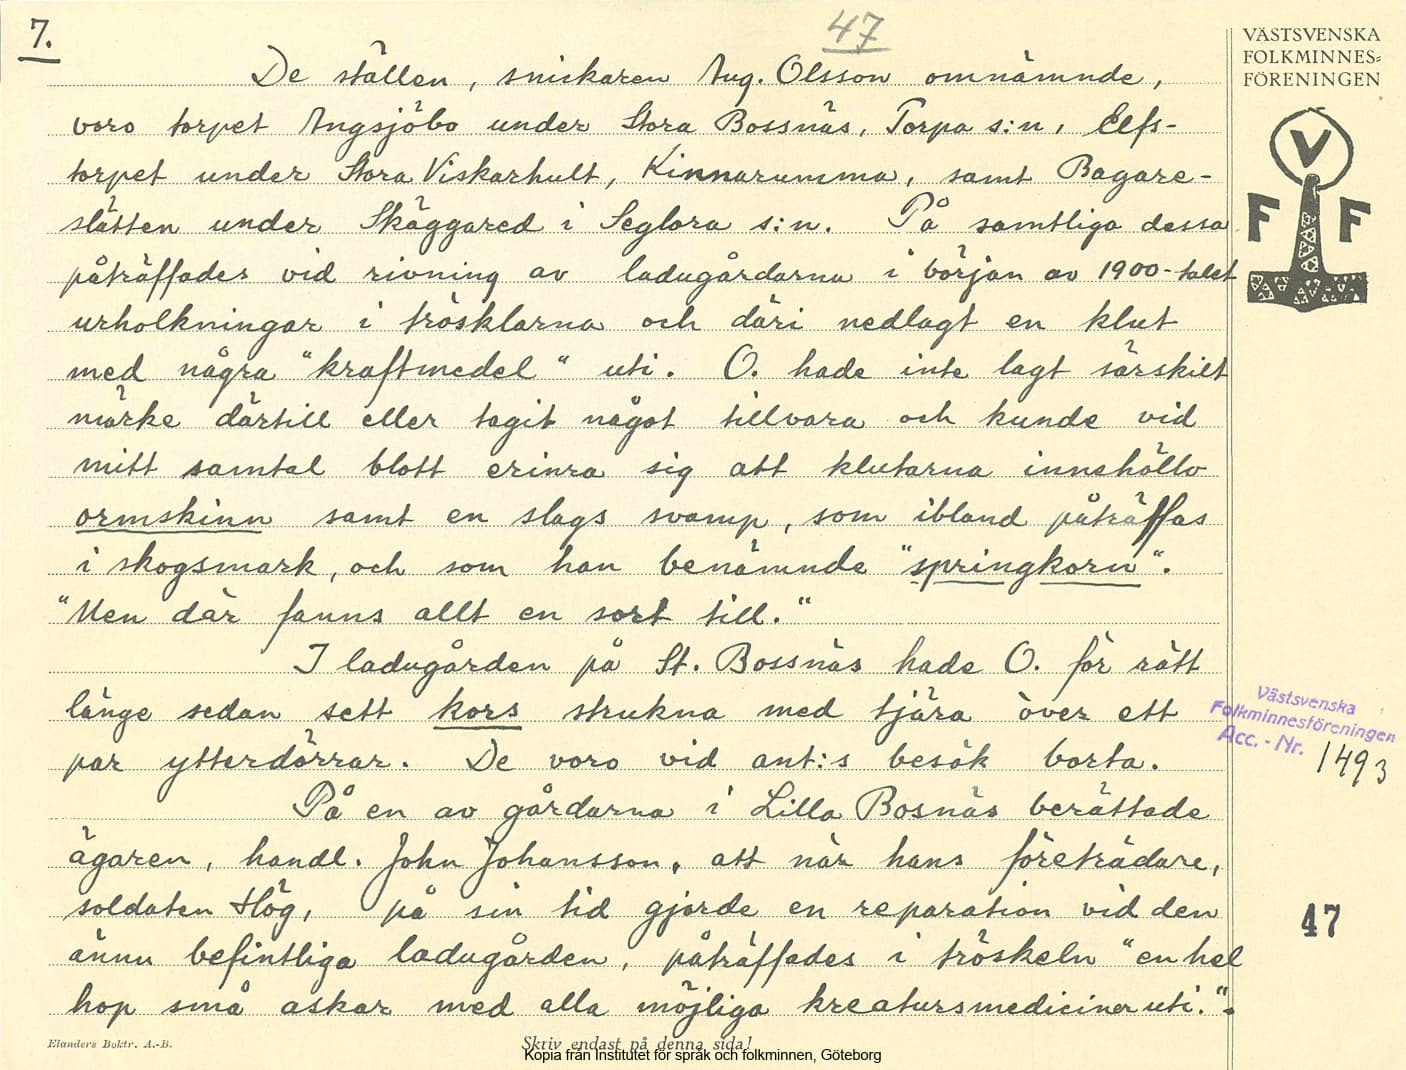 7.
47
VÄSTSVENSKA
FOLKMINNES=
FÖRENINGEN
V
F F
De ställen, snickaren Aug. Olsson omnämnde,
voro torpet Angsjöbo under Stora Bossnäs, Torpa s:n, Elfs-
torpet under Stora Viskarhult, Kinnarumma, samt Bagare-
slätten under Skäggared i Seglora s:n. På samtliga dessa
påträffades vid rivning av ladugårdarna i början av 1900-talet
urholkningar i trösklarna och däri nedlagt en klut
med några "kraftmedel" uti. O. hade inte lagt särskilt
märke därtill eller tagit något tillvara och kunde vid
mitt samtal blott erinra sig att klutarna innehöllo
ormskinn samt en slags svamp, som ibland påträffas
i skogsmark, och som han benämnde "springkorn".
"Men där fanns allt en sort till."
I ladugården på St. Bossnäs hade O. för rätt
länge sedan sett kors strukna med tjära över ett
par ytterdörrar. De voro vid ant:s besök borta.
På en av gårdarna i Lilla Bosnäs berättade
ägaren, handl. John Johansson, att när hans företrädare,
soldaten Hög, på sin tid gjorde en reparation vid den
ännu befintliga ladugården, påträffades i tröskeln "en hel
hop små askar med alla möjliga kreatursmediciner uti.".
Västsvenska
Folkminnesföreningen
Acc. - Nr. 1493
47
Elanders Boktr. A.-B.
Skriv endast på denna sida!
Kopia från Institutet för språk och folkminnen, Göteborg